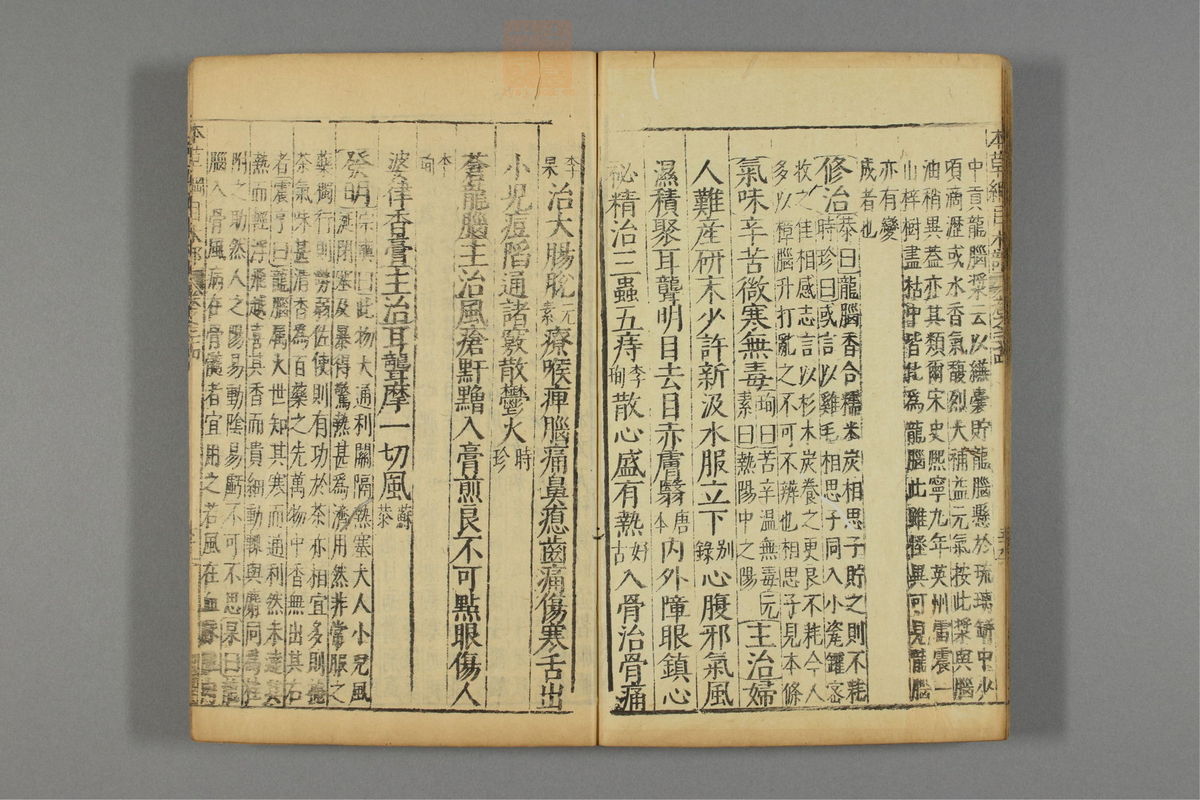 中貢龍腦漿云以縑囊貯龍腦懸於琉璃瓶中少
頃滴瀝成水香氣馥烈大補益元氣按此漿與腦
油稍異蓋亦其類爾宋史熙寧九年英州雷震一
山梓樹盡枯中皆化為龍腦此雖怪異可見龍腦
亦有變
成者也
修治恭曰龍腦香合糯米炭相思子貯之則不耗
時珍曰或言以雞毛相思子同入小瓷罐密
收之佳相感志言以杉木炭養之更良不耗今人
多以樟腦升打亂之不可不辨也相思子見本條
氣味辛苦微寒無毒珣曰苦辛溫無毒元
素曰熱陽中之陽主治婦
人難産研末少許新汲水服立下別
錄心腹邪氣風
濕積聚耳聾明目去目赤膚翳唐
本內外障眼鎮心
祕精治三蟲五痔李
珣散心盛有熱好
古入骨治骨痛
李
杲治大腸脫元
素療喉痺腦痛鼻瘜齒痛傷寒舌出
小兒痘陷通諸竅散鬱火時
珍
蒼龍腦主治風瘡䵟黯入膏煎良不可點眼傷人
李
珣
婆律香膏主治耳聾摩一切風蘇
恭
發明宗奭曰此物大通利關隔熱塞大人小兒風
涎閉塞及暴得驚熱甚為濟用然非常服之
藥獨行則勢弱佐使則有功於茶亦相宜多則掩
茶氣味甚清香為百藥之先萬物中香無出其右
者震亨曰龍腦屬火世知其寒而通利然未達其
熱而輕浮飛越喜其香而貴細動輒與麝同為桂
附之助然人之陽易動陰易虧不可不思杲曰龍
腦入骨風病在骨髓者宜用之若風在血